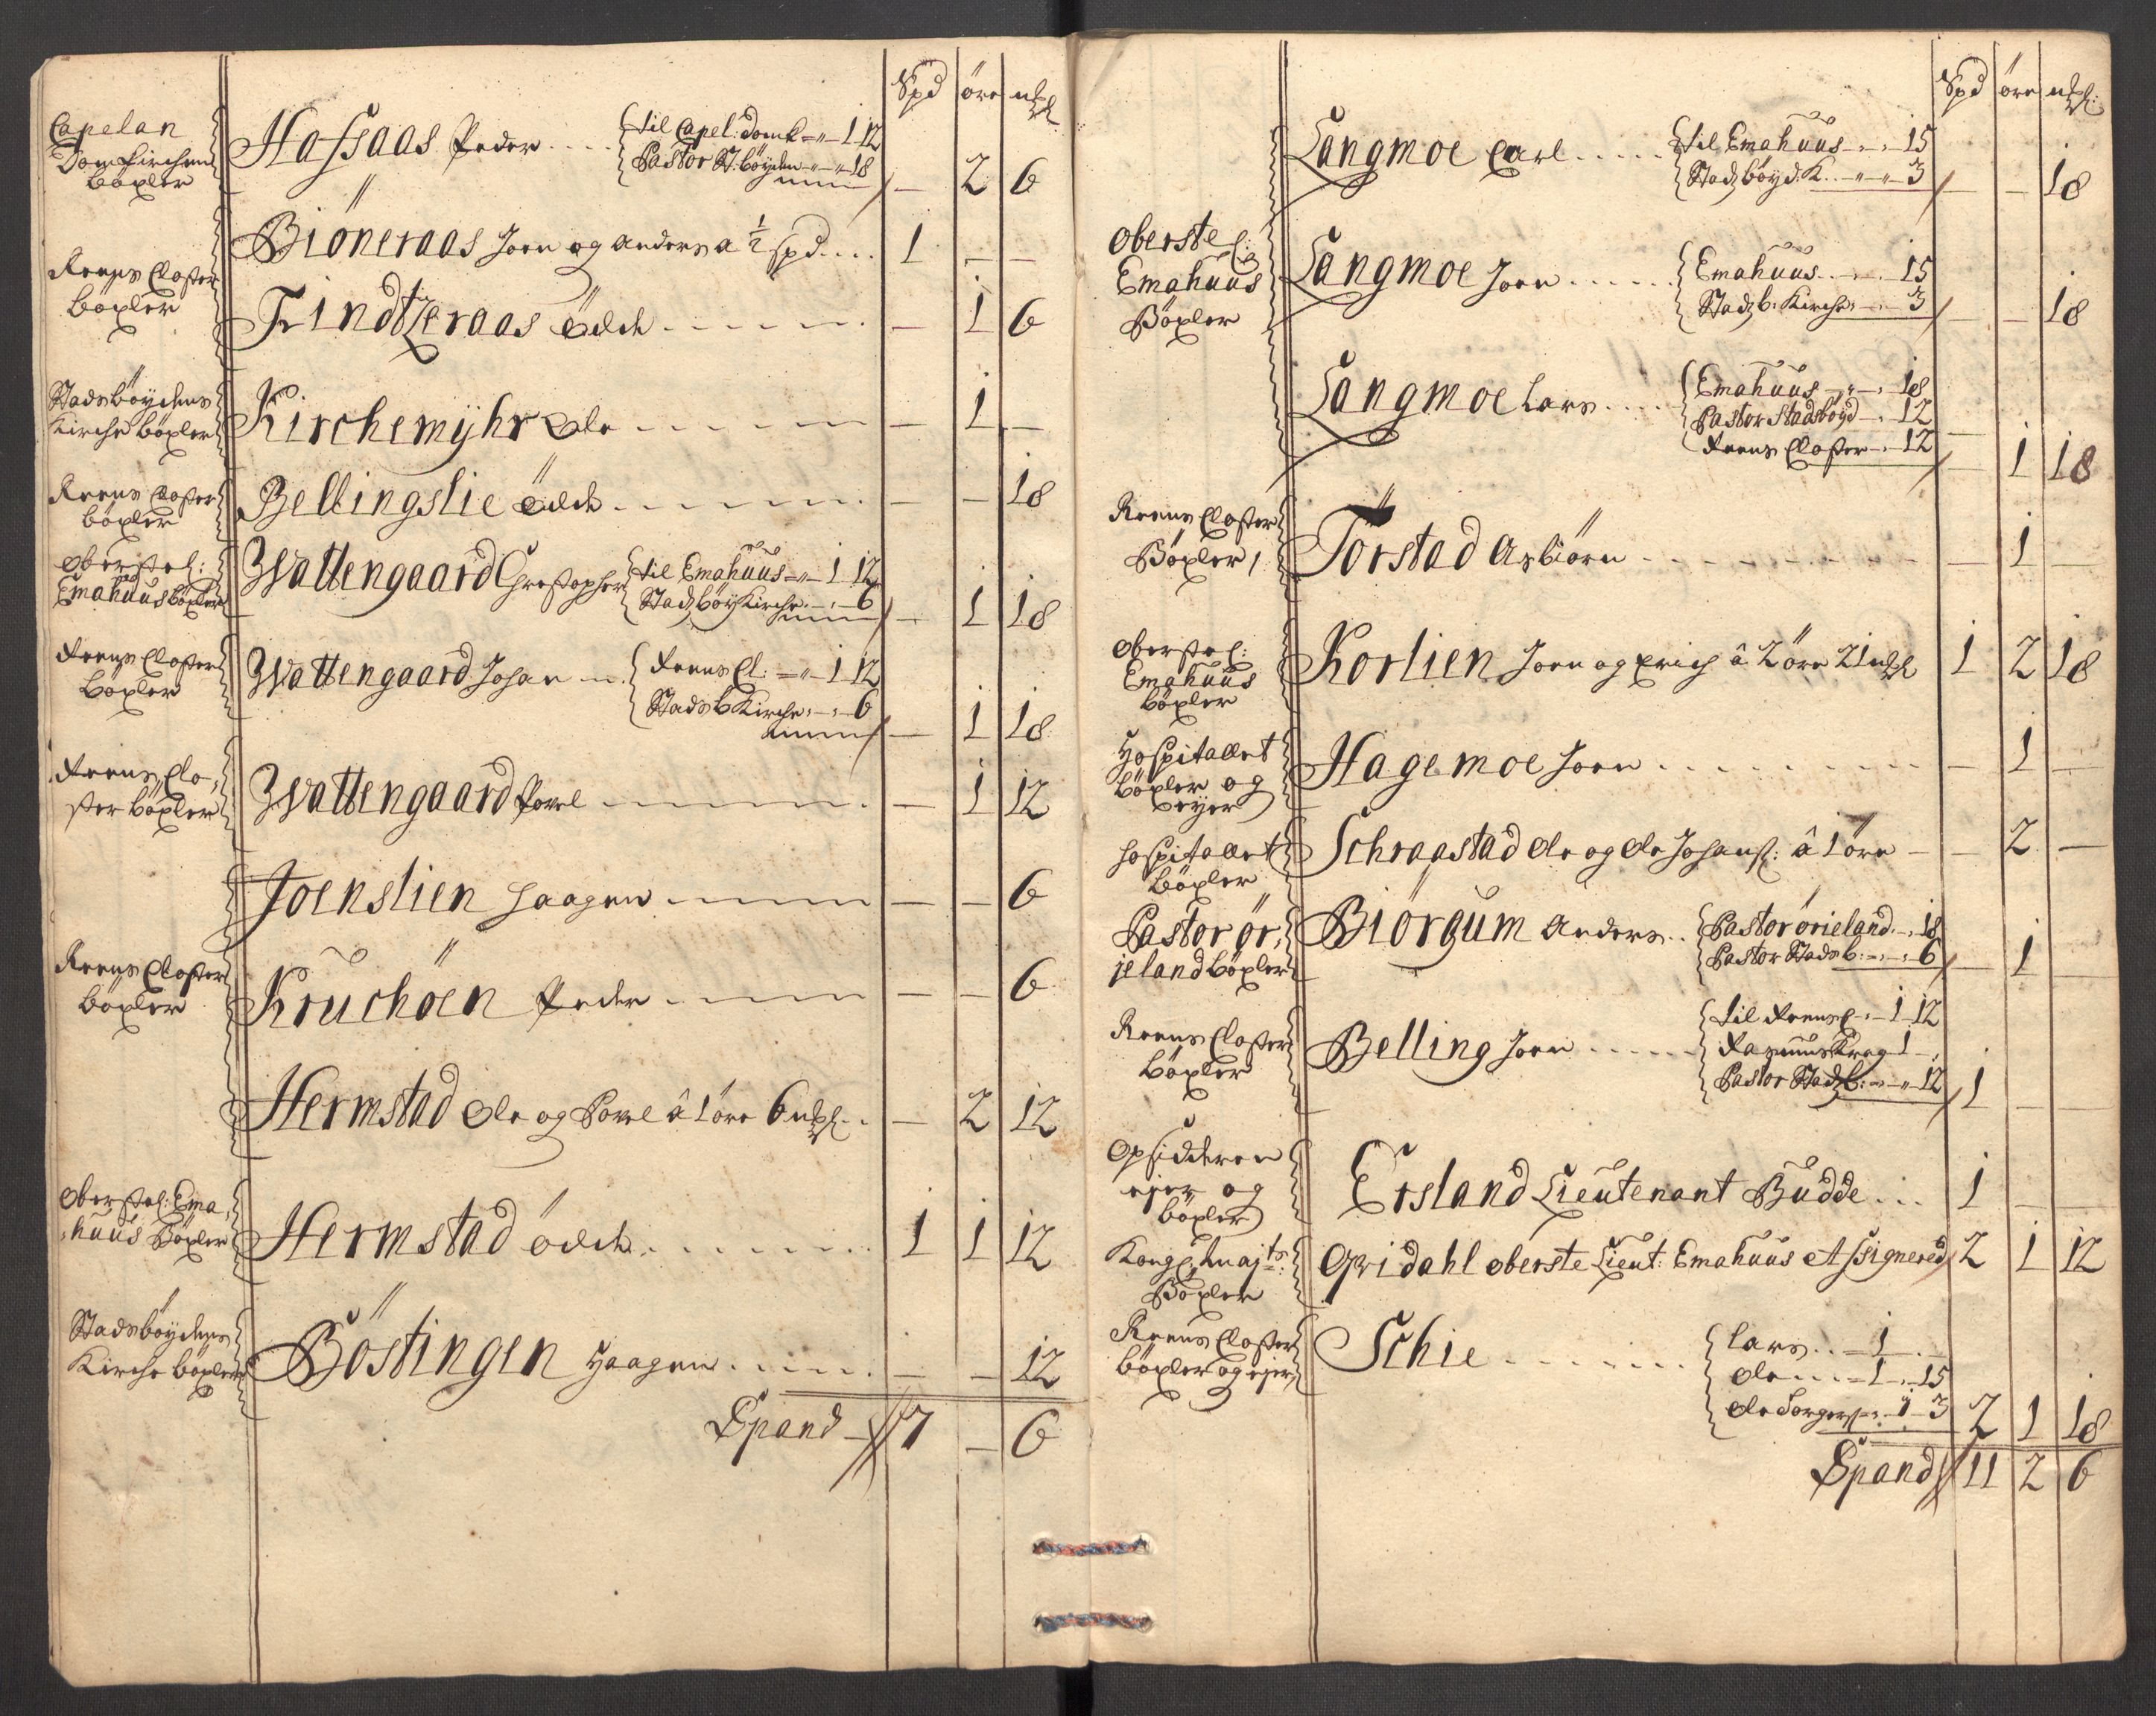 Spd öre mkl
Capelan
Domkirchen
böxler
Hafsaas Peder ....
til Capel: domk = " - 1 12
Pastor St: böyden - " - " 18
- 2 6
Biöneraas Joen og Anders a ½ spd .... 1 - -
Reens Closter
böxler
Findtzeraas Oluf - 1 6
Stadsböydens
Kirche böxler
Kirchemÿhr Ole - 1 -
Reens Closter
böxler
Bellingslie - - 18
Oberstel:
Emahuus böxler
Wattengaard Christopher
til Emahuus = " - 1 12
Stadzböy Kirche - " - 6
- 1 18
Reens Closter
böxler
Wattengaard Johan
Reens Cl: = " - 1 12
Stads b Kirche - " - 6
- 1 18
Reens Clo,
ster böxler
Wattengaard Povel - 1 12
Joenslien Haagen - - 6
Reens Closter
böxler
Kruchöen Peder - - 6
Hermstad Ole og Povel â 1 öre 6 mkl .. - 2 12
Oberstel: Ema,
huus Böxler
Hermstad 1 1 12
Stadsböydens
Kirche böxler
Böstingen Haagen - - 12
Spand 7 - 6
Spd öre mkl:
Langmoe Carl .....
til Emahuus - " - 15
Stadzböyd: K .. - " - " - 3
- - 18
Oberstel:
Emahuus
Böxler
Langmoe Joen ......
Emahuus .. - " - 15
Stadz b: Kirche - " - 3
- - 18
Langmoe Lars ....
Emahuus - " - 18
Pastor Stadsböyd - " 12
Reens Closter - " 12
- 1 18
Reens Closter
Böxler
Törstad Asbiörn - 1 -
Oberstel:
Emahuus
böxler
Korlien Joen og Erich â 2 öre 21 mkl 1 2 18
Hospitallet
böxler og
eyer
Hagemoe Joen - 1 -
Hospitallet
böxler
Schraastad Ole og Ole Johans: â 1 öre - 2 -
Pastor ör,
jeland böxler
Biörgum Anders ..
Pastor örieland - " 18
Pastor Stads b: - " - 6
- 1 -
Reens Closter
böxler
Belling Joen .....
til Reens C - " - 1 12
Rasmus Krag 1 - "
Pastor Stadz b: - " - " 12
1 - -
Opsidderen
ejer og
böxler
Ersland Lieutenant Budde ... 1 - -
Kongl: Majts:
Böxler
Opridahl oberste Lieut: Emahuus Assignered 2 1 12
Reens Closter
böxler og ejer
Schie
Lars .. - 1 -
Ole ... - 1 - 15
Ole Torgers: - 1 - 3
2 1 18
Spand 11 2 6